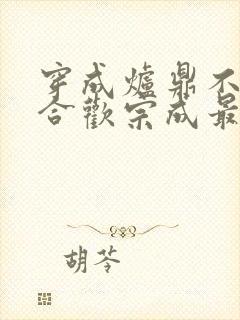 穿成爐鼎不
合歡宗成最
胡苓